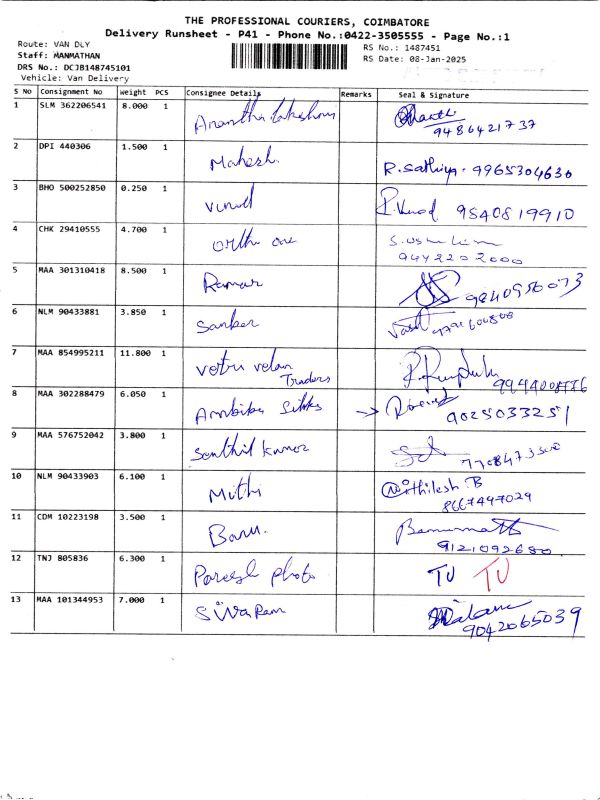 THE PROFESSIONAL COURIERS, COIMBATORE
Delivery Runsheet - P41 - Phone No.:0422-3505555 - Page No.:1
Route: VAN DLY
Staff: MANMATHAN
DRS No.: DCJB148745101
Vehicle: Van Delivery
RS No.: 1487451
RS Date: 08-Jan-2025
S No Consignment No Weight PCS Consignee Details Remarks Seal & Signature
1 SLM 362206541 8.000 1 Anantha lakshmi
9486421737
2 DPI 440306 1.500 1 Mahesh R.Sathiya. 9965304630
3 BHO 500252850 0.250 1 vinod P.Vinod 9540819910
4 CHK 29410555 4.700 1 ortho one
9442202000
5 MAA 301310418 8.500 1 Ramar 9840956073
6 NLM 90433881 3.850 1 Sanker
7 MAA 854995211 11.800 1 vetri velan
Traders
8 MAA 302288479 6.050 1 Ambika Silks
9025033251
9 MAA 576752042 3.800 1 Senthil kumar
10 NLM 90433903 6.100 1 Mithi Mithilesh.B
8667497029
11 CDM 10223198 3.500 1 Banu.
9121092680
12 TNJ 805836 6.300 1 Pareesh photo TU TU
13 MAA 101344953 7.000 1 SiVaRam
9042065039